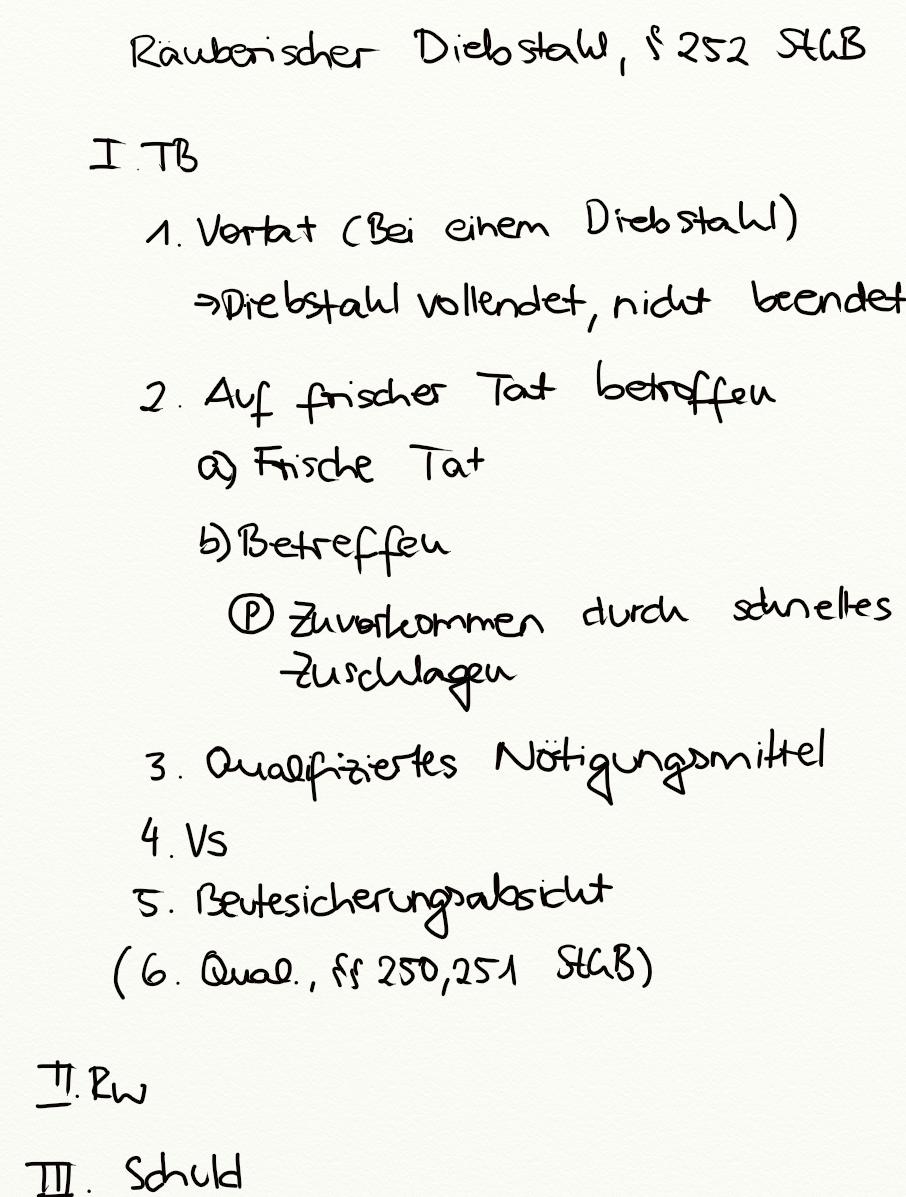 Räuberischer Diebstahl, § 252 StGB
I. TB
1. Vortat (Bei einem Diebstahl)
⇒Diebstahl vollendet, nicht beendet
2. Auf frischer Tat betroffen
a) Frische Tat
b) Betreffen
Ⓟ Zuvorkommen durch schnelles
Zuschlagen
3. Qualifiziertes Nötigungsmittel
4. Vs
5. Beutesicherungsabsicht
(6. Qual., §§ 250,251 StGB)
II. RW
III. Schuld